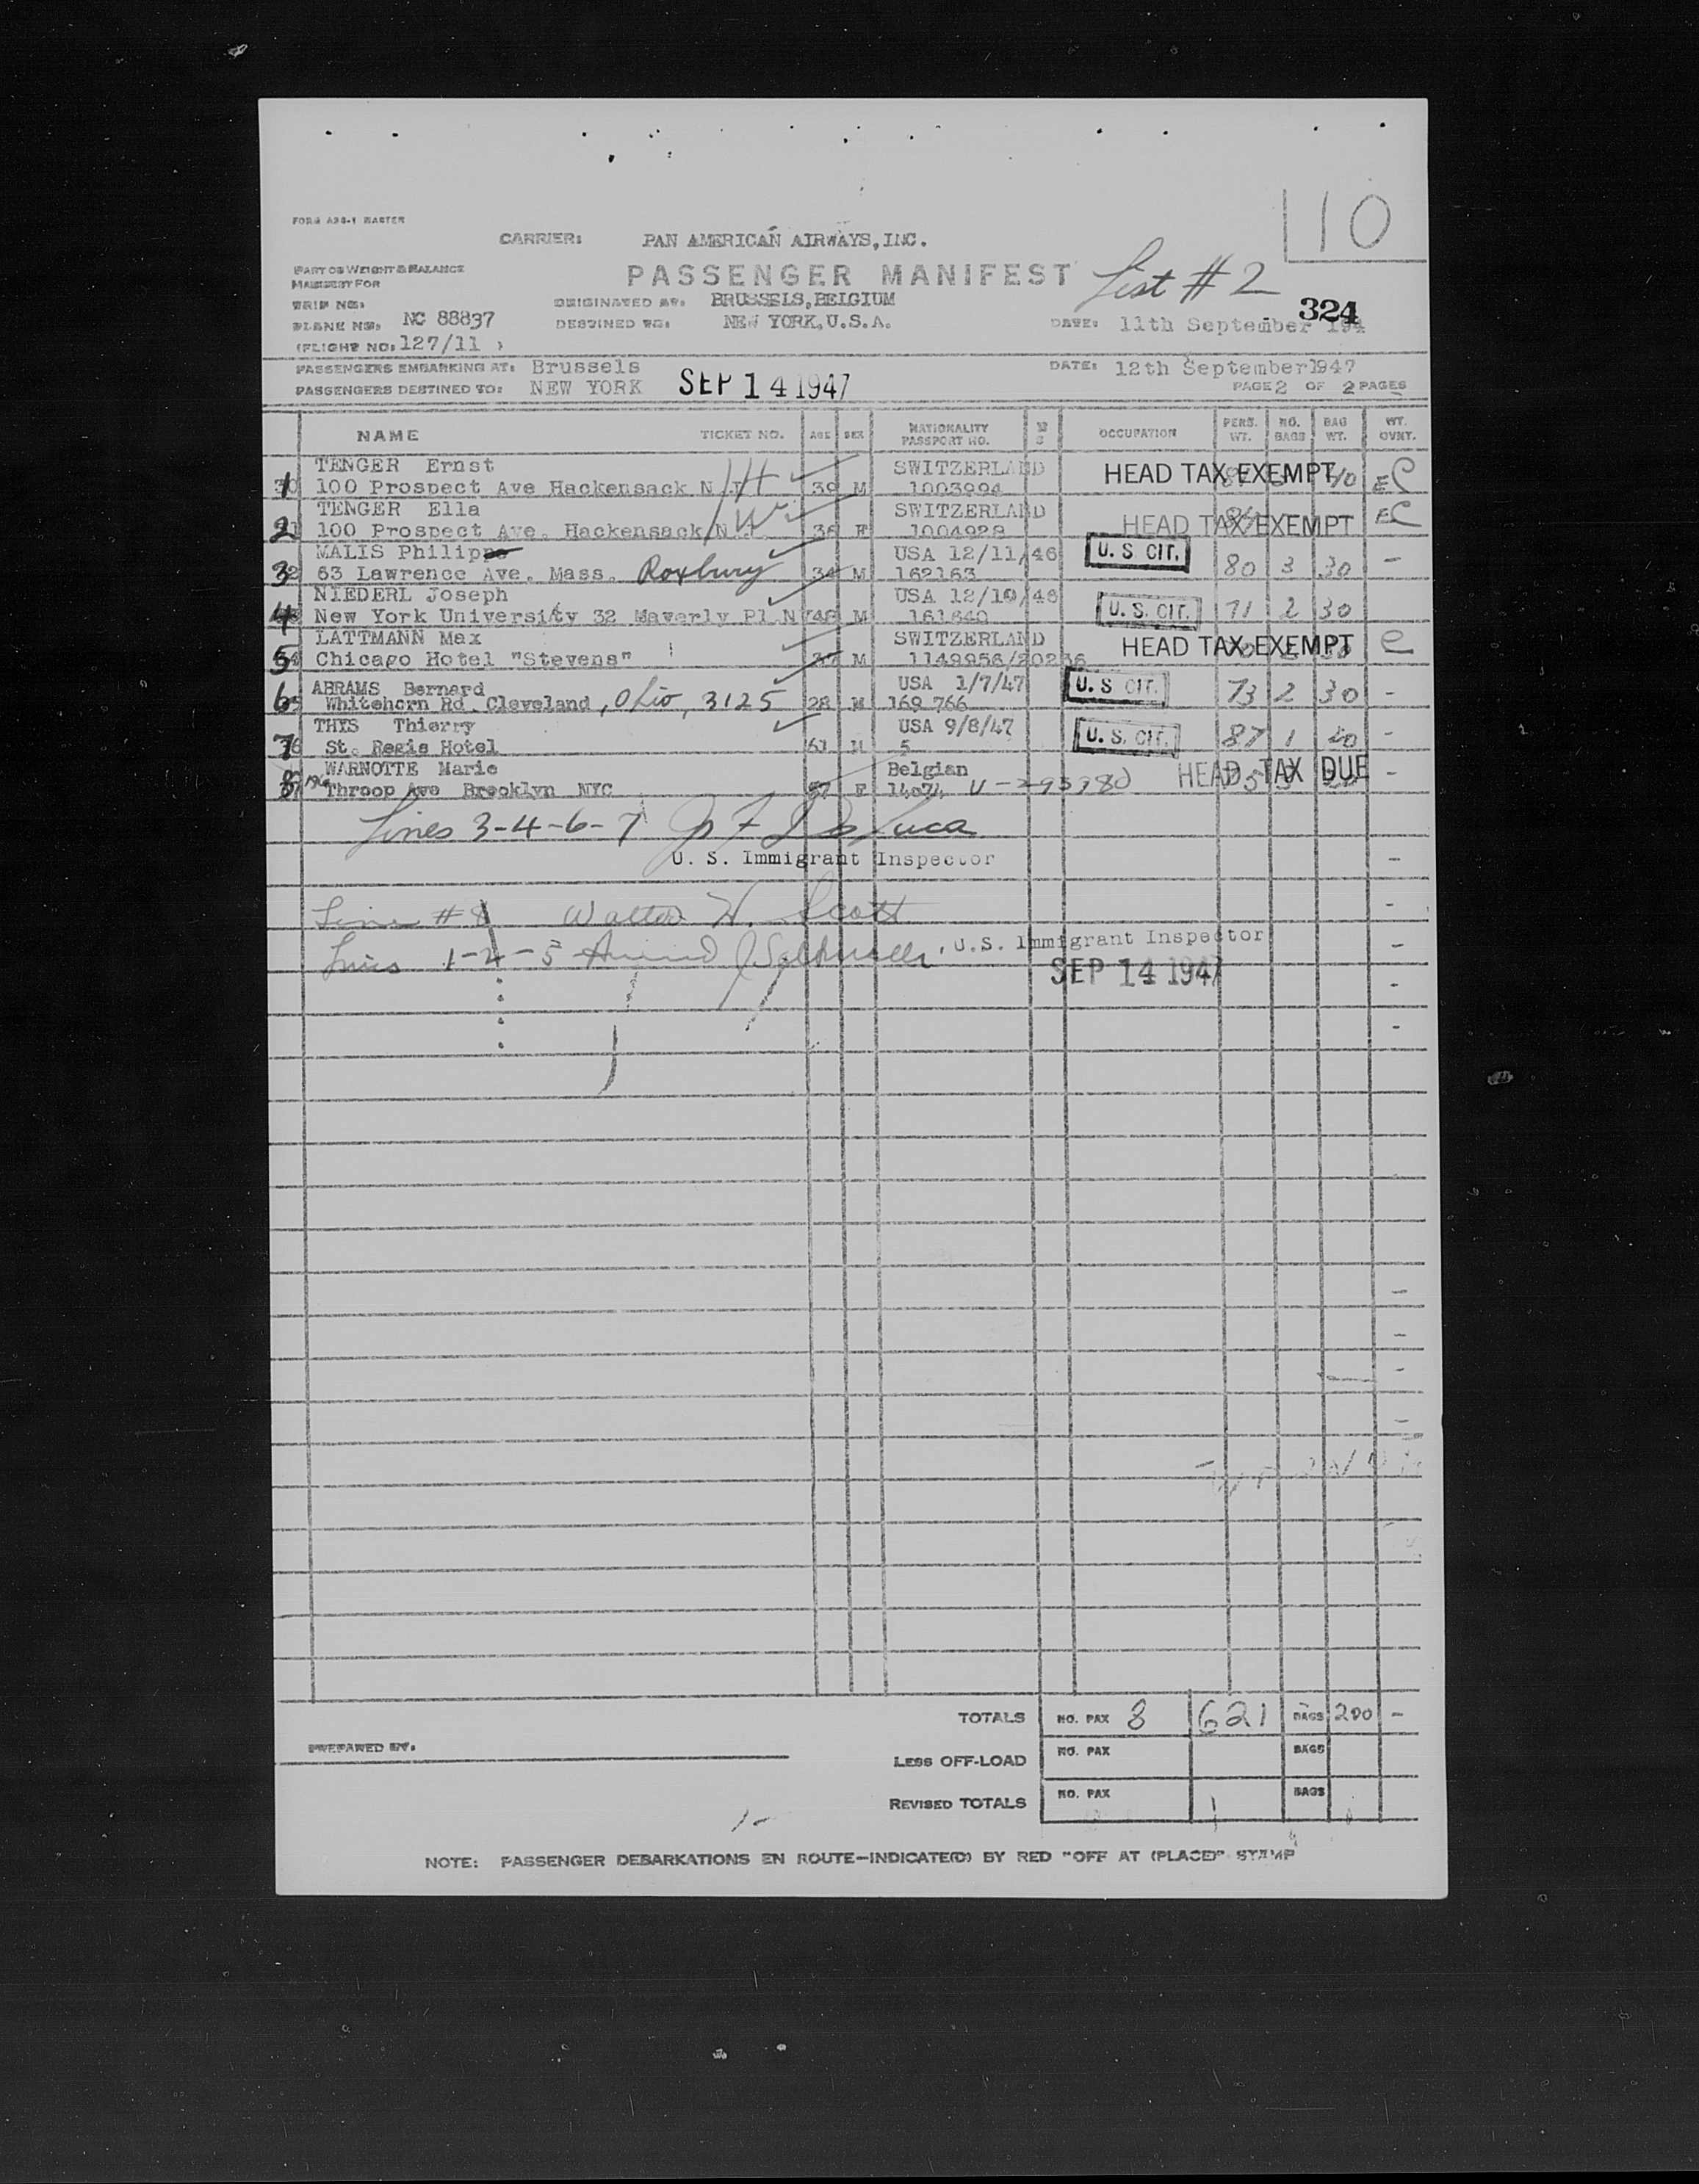 10
FORM A36-1 MASTER
CARRIER: PAN AMERICAN AIRWAYS, INC.
PART OF WEIGHT & BALANCE
MANIFEST FOR
PASSENGER MANIFEST List #2
TRIP NO:
ORIGINATED AT: BRUSSELS, BELGIUM
324
PLANE NO: NC 88837
DESTINED TO: NEW YORK, U.S.A.
DATE: 11th September 194
(FLIGHT NO: 127/11 )
PASSENGERS EMBARKING AT: Brussels DATE: 12th September 1947
PASSENGERS DESTINED TO: NEW YORK SEP 14 1947 PAGE 2 OF 2 PAGES
NAME TICKET NO. AGE SEX NATIONALITY PASSPORT NO. OCCUPATION PERS. WT. NO. BAGS BAG WT. WT. OVNT.
TENGER Ernst SWITZERLAND HEAD TAX EXEMPT
1 100 Prospect Ave Hackensack N.J. 39 M 1003994 EC
TENGER Ella SWITZERLAND HEAD TAX EXEMPT EC
2 100 Prospect Ave. Hackensack N.J. 36 F 1004928
MALIS Philippe USA 12/11/46 U. S. CIT.
3 63 Lawrence Ave. Mass. Roxbury 34 M 162163 80 3 30 -
NIEDERL Joseph USA 12/10/46 U. S. CIT.
4 New York University 32 Waverly Pl N 48 M 161640 71 2 30
LATTMANN Max SWITZERLAND HEAD TAX EXEMPT e
5 Chicago Hotel "Stevens" 37 M 1149956/20236
ABRAMS Bernard USA 1/7/47 U. S. CIT.
6 Whitehorn Rd. Cleveland, Ohio, 3125 28 M 169 766 73 2 30 -
THYS Thierry USA 9/8/47 U. S. CIT.
7 St. Regis Hotel 61 M 5 87 1 20 -
WARNOTTE Marie Belgian HEAD TAX DUE -
8 Throop Ave Brooklyn NYC 57 F 14074 V-293980
Lines 3-4-6-7 J F DeLuca
U. S. Immigrant Inspector
Line #8 Walter H. Scott
Lines 1-2-5 U.S. Immigrant Inspector
SEP 14 1947
TOTALS NO. PAX 8 621 BAGS 200 -
PREPARED BY:
LESS OFF-LOAD NO. PAX BAGS
REVISED TOTALS NO. PAX BAGS
NOTE: PASSENGER DEBARKATIONS EN ROUTE-INDICATE(D) BY RED "OFF AT (PLACE)" STAMP